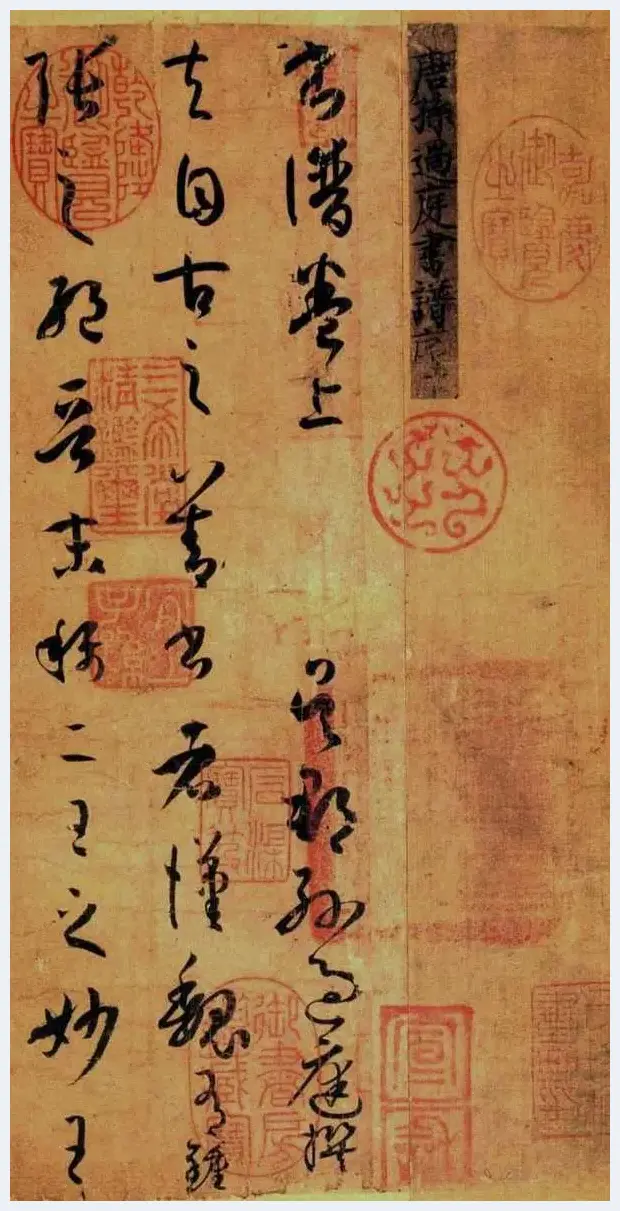 嘉慶御覽之寶
唐孫過庭書譜序
宣和
書譜卷上
吳郡孫過庭撰
夫自古之善書者漢魏有鍾
石渠寶笈
御書房鑑藏寶
張之絕晉末稱二王之妙王
乾隆御覽之寶
三希堂精鑑璽
宜子孫